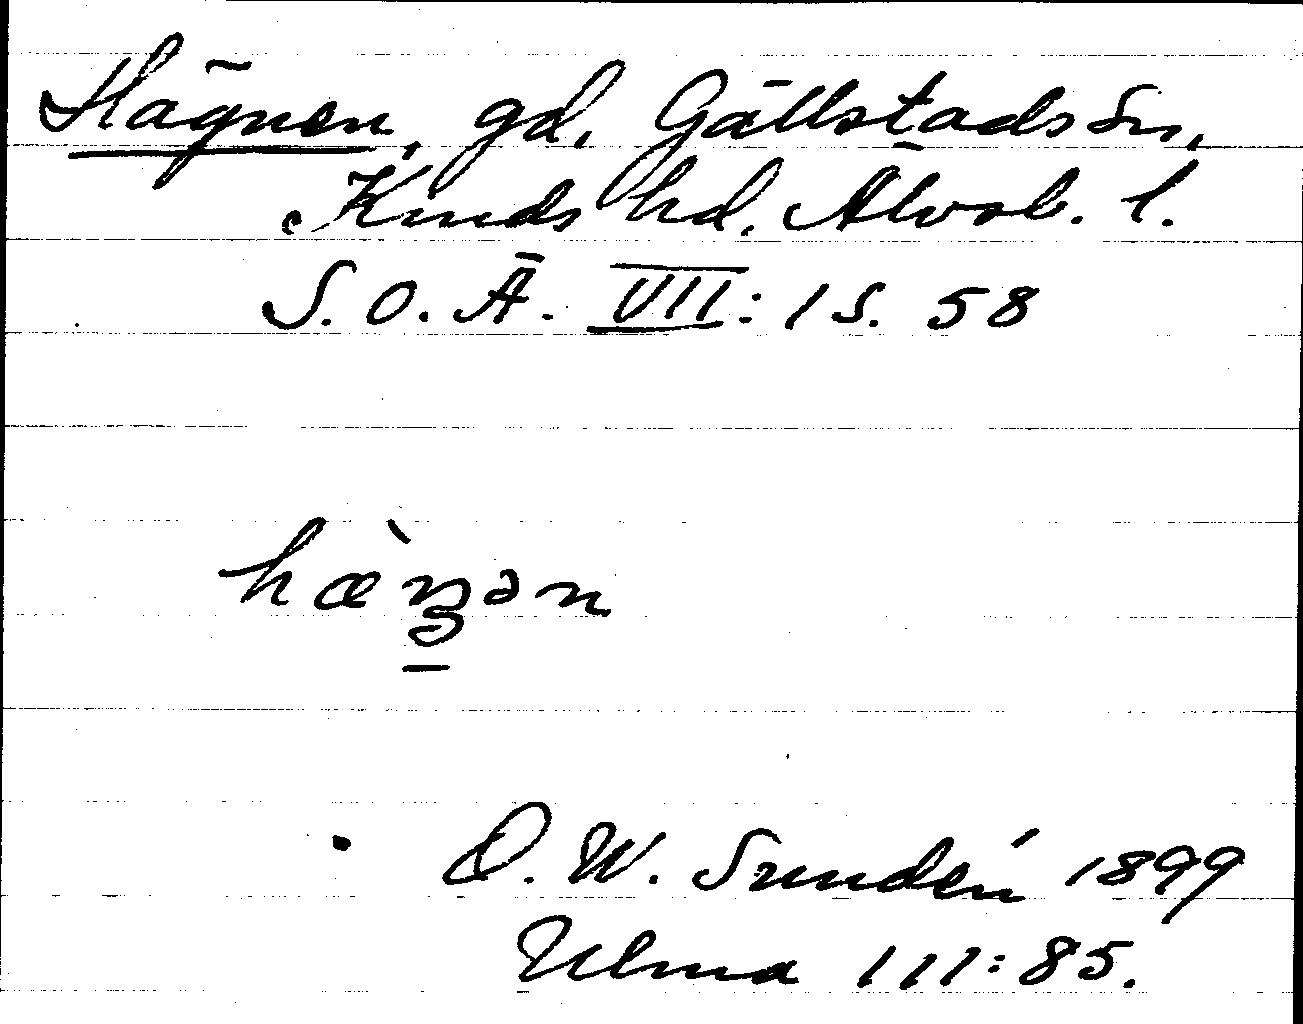 Hägnen, gd, Gällstads sn,
Kinds hd. Älvsb. l.
S. O. Ä. VII: 1 S. 58
hæ̀ŋən
O. W. Sundén 1899
Ulma 111:85.